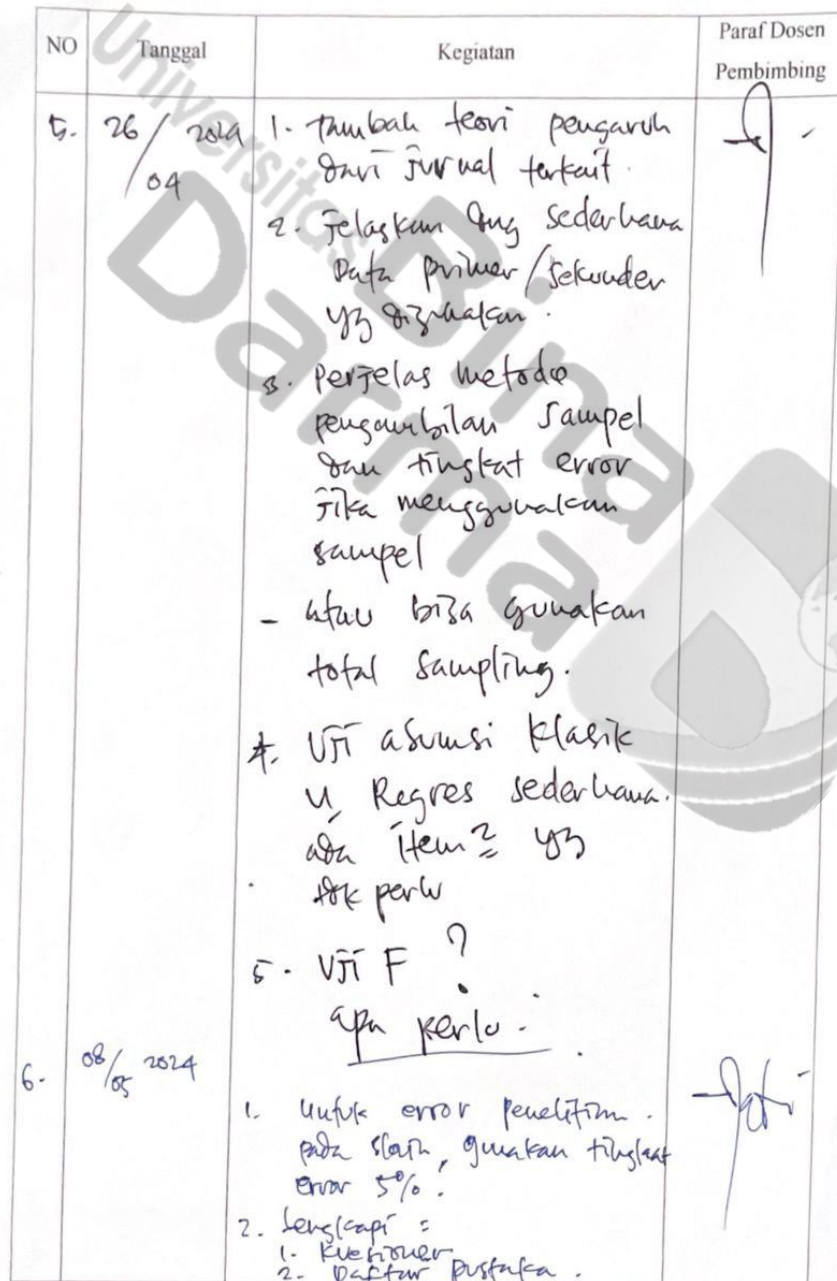 NO Tanggal Kegiatan Paraf Dosen Pembimbing
Universitas
Bina
Darma
5. 26/04 2024 1. tambah teori pengaruh
dari jurnal terkait.
2. Jelaskan dng sederhana
Data primer/sekunder
yg digunakan.
3. Perjelas metode
pengambilan sampel
dan tingkat error
jika menggunakan
sampel
- atau bisa gunakan
total sampling.
4. Uji asumsi klasik
u, Regres sederhana.
ada item2 yg
tdk perlu
5. Uji F ?
apa perlu.
6. 08/05 2024
1. Untuk error penelitian.
pada, gunakan tingkat
error 5%.
2. Lengkapi :
1. Kuesioner
2. Daftar pustaka.